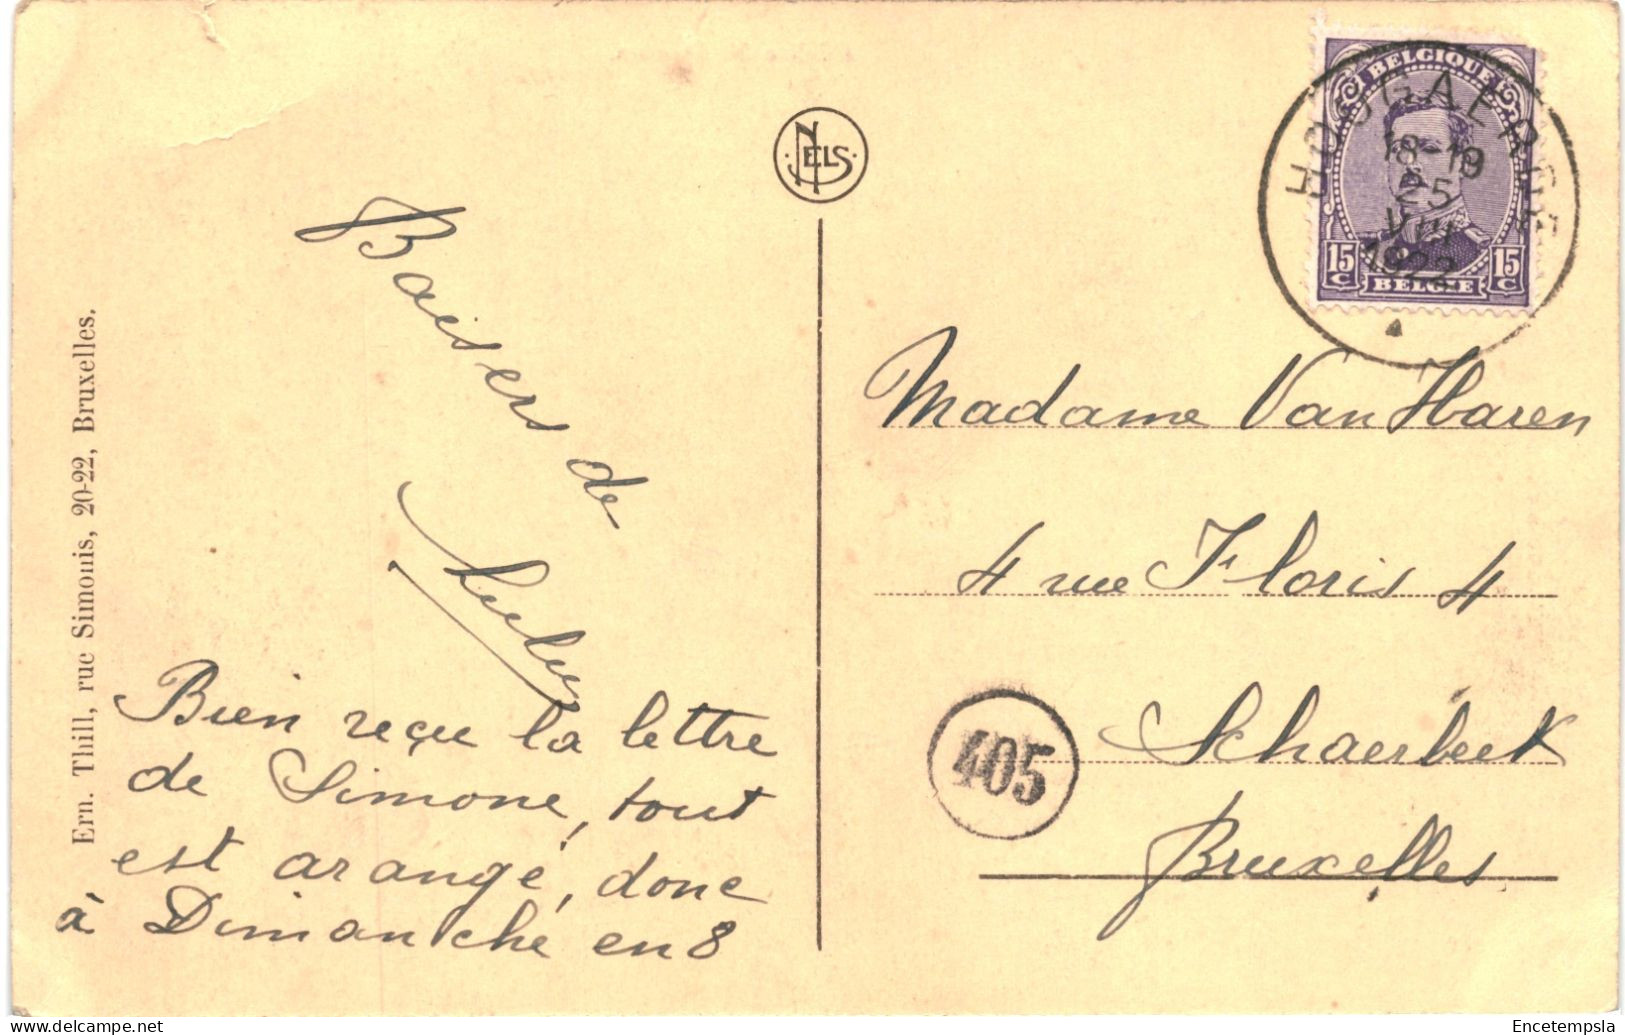 Ern. Thill, rue Simonis, 20-22, Bruxelles.
NELS
Baisers de
Bien reçu la lettre
de Simone, tout
est arangé, donc
à Dimanche en 8
BELGIQUE
15 C
15 C
BELGIE
HOUGAERDE
18-19
25
VIII
1922
Madame Van Haren
4 rue Floris 4
Schaerbeek
Bruxelles
405
Encetempsla